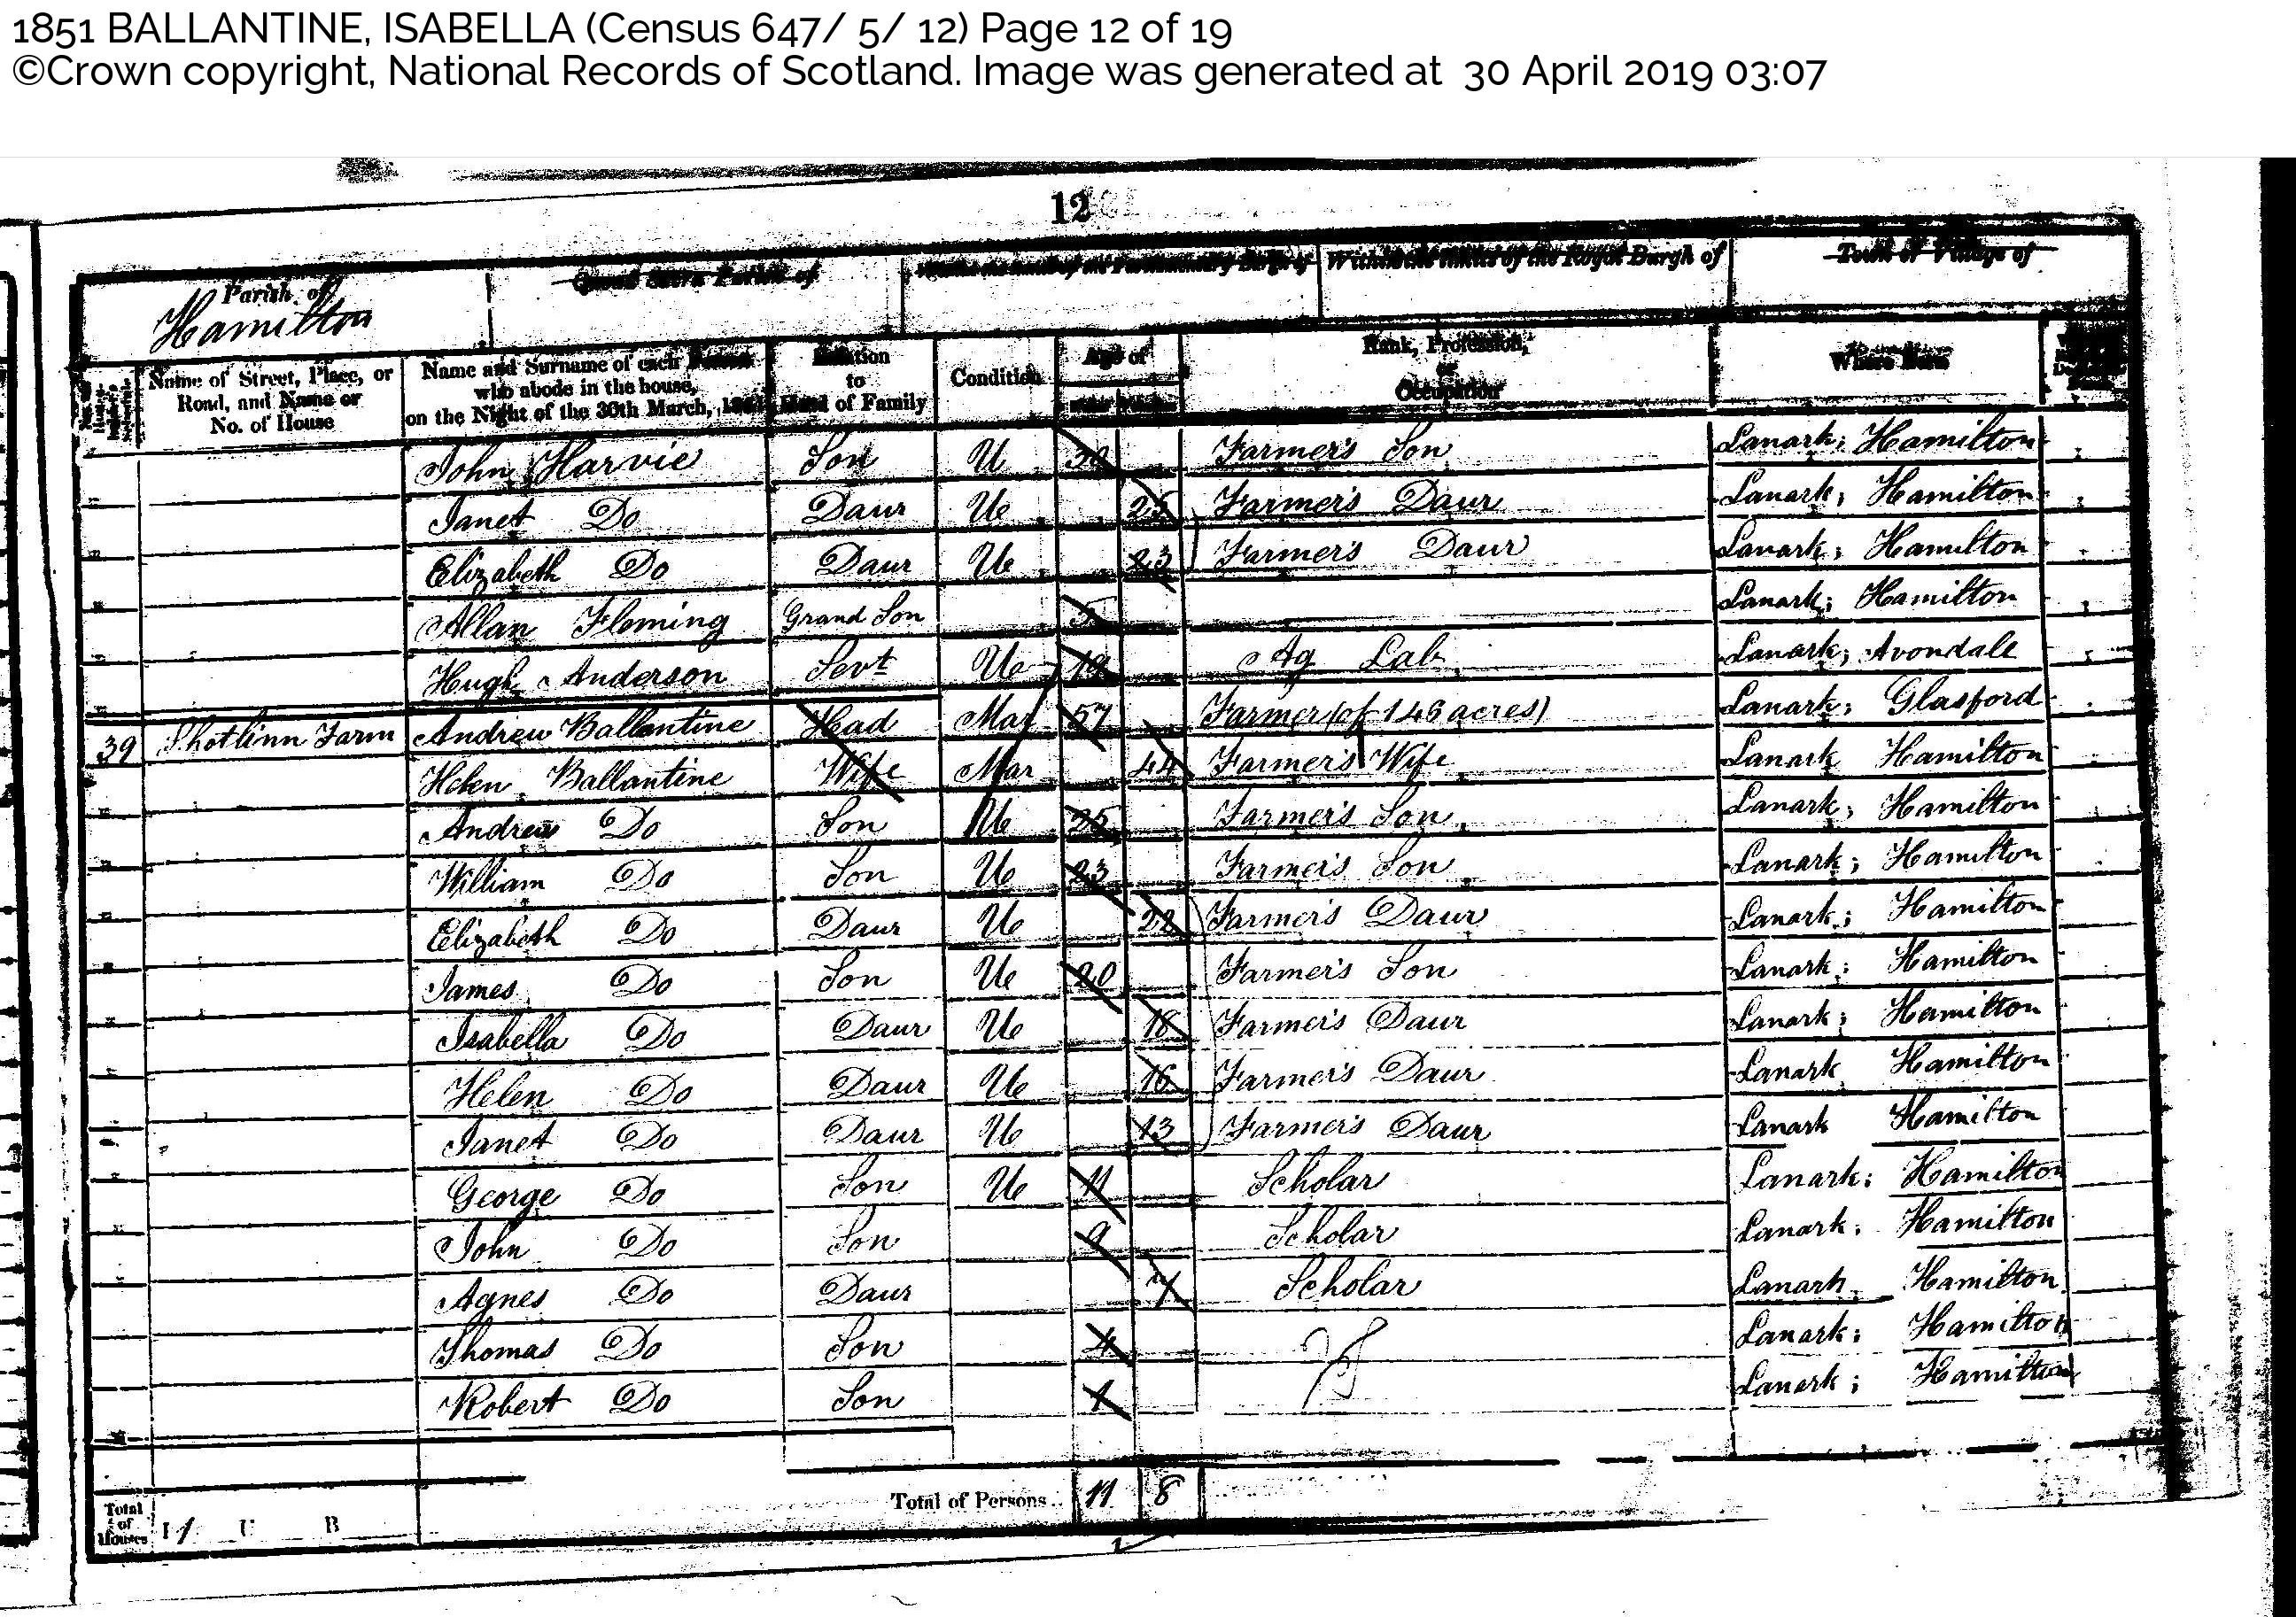 1851 BALLANTINE, ISABELLA (Census 647/ 5/ 12) Page 12 of 19
©Crown copyright, National Records of Scotland. Image was generated at 30 April 2019 03:07
12
Parish of Quoad Sacra Parish of Within the Limits of the Parliamentary Burgh of Within the Limits of the Royal Burgh of Town or Village of
Hamilton
Name of Street, Place, or Road, and Name or No. of House Name and Surname of each Person who abode in the house, on the Night of the 30th March, 1851 Relation to Head of Family Condition Age of Rank, Profession, or Occupation Where Born
John Harvie Son U Farmer's Son Lanark; Hamilton
Janet Do Daur U 25 Farmer's Daur Lanark; Hamilton
Elizabeth Do Daur U 23 Farmer's Daur Lanark; Hamilton
Allan Fleming Grand Son 5 Lanark; Hamilton
Hugh Anderson Servt U 19 Ag Lab Lanark; Avondale
39 Shotlinn Farm Andrew Ballantine Head Mar 57 Farmer (of 146 acres) Lanark; Glasford
Helen Ballantine Wife Mar 44 Farmer's Wife Lanark Hamilton
Andrew Do Son U 25 Farmer's Son Lanark; Hamilton
William Do Son U 23 Farmer's Son Lanark; Hamilton
Elizabeth Do Daur U 22 Farmer's Daur Lanark; Hamilton
James Do Son U 20 Farmer's Son Lanark; Hamilton
Isabella Do Daur U 18 Farmer's Daur Lanark; Hamilton
Helen Do Daur U 16 Farmer's Daur Lanark Hamilton
Janet Do Daur U 13 Farmer's Daur Lanark Hamilton
George Do Son U 11 Scholar Lanark: Hamilton
John Do Son 9 Scholar Lanark. Hamilton
Agnes Do Daur 7 Scholar Lanark Hamilton
Thomas Do Son 4 Lanark: Hamilton
Robert Do Son 1 Lanark; Hamilton
Total of Houses I 1 U B Total of Persons.. 11 8